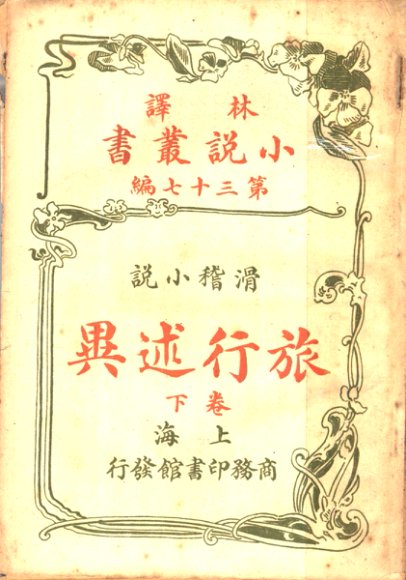 林譯
小說叢書
第三十七編
滑稽小說
旅行述異
卷下
上海
商務印書館發行